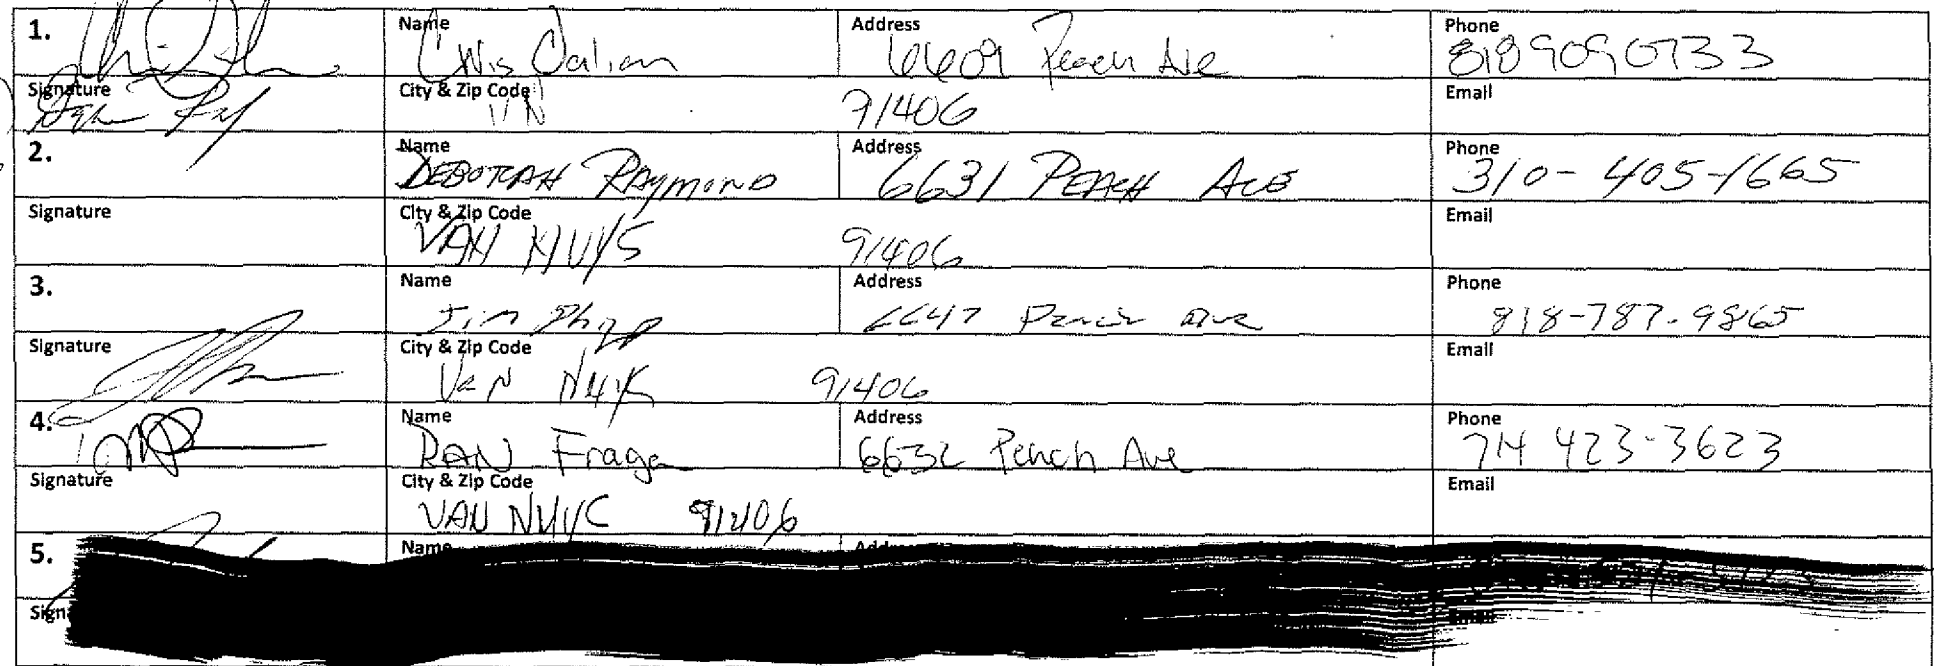 1. Name Chris Dalian Address 6609 Peach Ave Phone 8189090733
Signature City & Zip Code VN 91406 Email
2. Name DEBORAH RAYMOND Address 6631 PEACH AVE Phone 310-405-1665
Signature City & Zip Code VAN NUYS 91406 Email
3. Name Jim Address 6647 Peach Ave Phone 818-787-9865
Signature City & Zip Code Van Nuys 91406 Email
4. Name RAN Fraga Address 6632 Peach Ave Phone 714 423-3623
Signature City & Zip Code VAN NUYS 91406 Email
5. Name